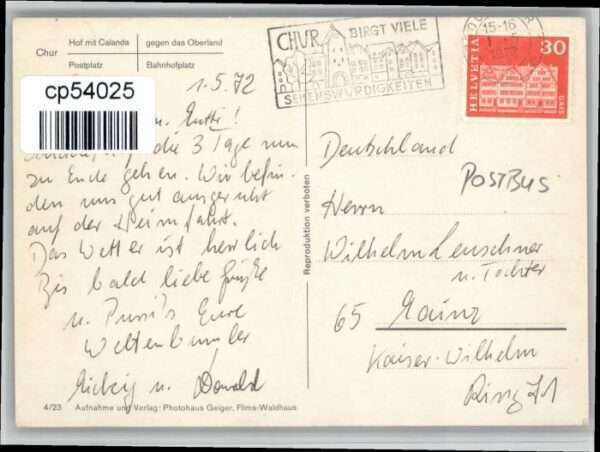 Chur
Hof mit Calanda
Postplatz
gegen das Oberland
Bahnhofplatz
cp54025
1.5.72
Mutti!
die 3 Tage nun
zu Ende gehen. Wir befin-
den uns gut ausgeruht
auf der Heimfahrt.
Das Wetter ist herrlich
Bis bald liebe Grüße
u. Pussi's Eure
Weltenbummler
u. Donald
4/23 Aufnahme und Verlag: Photohaus Geiger, Flims-Waldhaus
Reproduktion verboten
CHUR BIRGT VIELE
SEHENSWÜRDIGKEITEN
15-16
HELVETIA 30
GAIS
Deutschland
POSTBUS
Herrn
Wilhelm Leuschner
u. Tochter
65 Mainz
Kaiser-Wilhelm
Ring 71